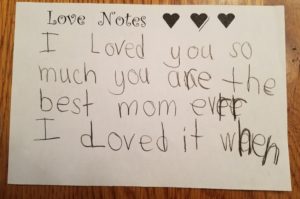 Love Notes ♥ ♥ ♥
I Loved you so
much you are the
best mom ever
I Loved it when